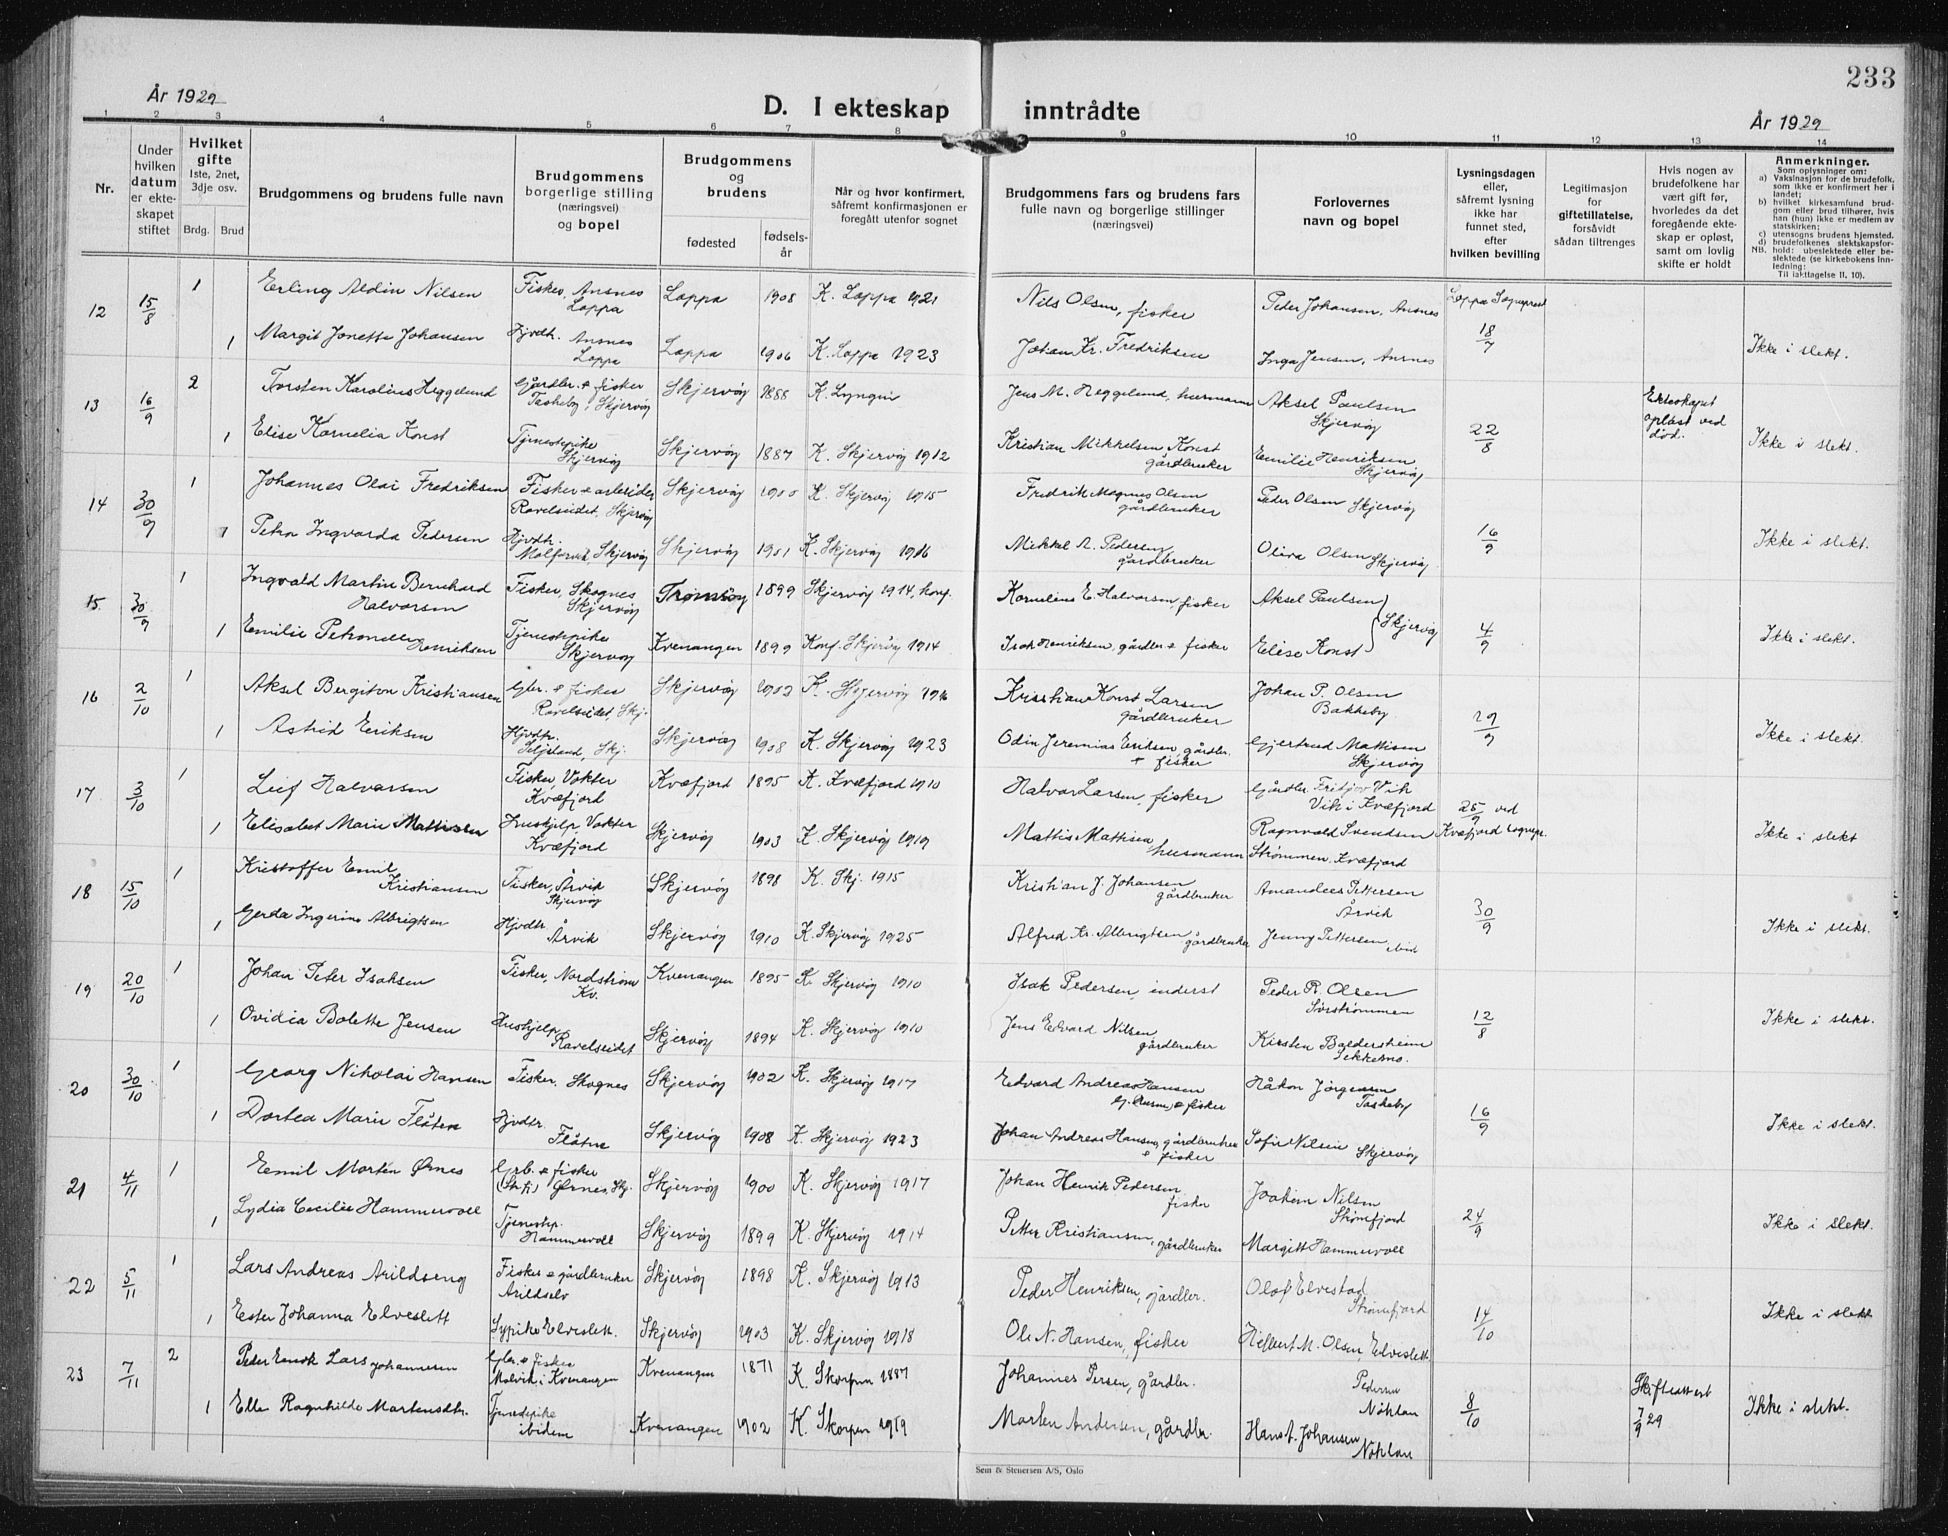 233
År 1929
D. I ekteskap inntrådte
År 1929
1 2 3 4 5 6 7 8 9 10 11 12 13 14
Nr.
Under hvilken datum er ekteskapet stiftet
Hvilket gifte 1ste, 2net, 3dje osv.
Brdg. Brud
Brudgommens og brudens fulle navn
Brudgommens borgerlige stilling (næringsvei) og bopel
Brudgommens og brudens
fødested
fødselsår
Når og hvor konfirmert, såfremt konfirmasjonen er foregått utenfor sognet
Brudgommens fars og brudens fars fulle navn og borgerlige stillinger (næringsvei)
Forlovernes navn og bopel
Lysningsdagen eller, såfremt lysning ikke har funnet sted, efter hvilken bevilling
Legitimasjon for giftetillatelse, forsåvidt sådan tiltrenges
Hvis nogen av brudefolkene har vært gift før, hvorledes da det foregående ekteskap er opløst, samt om lovlig skifte er holdt
Anmerkninger.
Som oplysninger om:
a) Vaksinasjon for de brudefolk, som ikke er konfirmert her i landet;
b) hvilket kirkesamfund brudgom eller brud tilhører, hvis han (hun) ikke er medlem av statskirken;
c) utensogns brudens hjemsted.
d) brudefolkenes slektskapsforhold: ubeslektede eller beslektede (se kirkebokens innledning:
NB. Til iakttagelse II, 10).
12 15/8 1 Erling Aldin Nilsen Fisker, Ansnes Loppa Loppa 1908 K. Loppa 1921 Nils Olsen, fisker Peder Johansen, Ansnes Loppa Sogneprest 18/7
1 Margit Jonette Johansen Hjvdtr. Ansnes Loppa Loppa 1906 K. Loppa 1923 Johan Kr. Fredriksen Inga Jensen, Ansnes Ikke i slekt.
13 16/9 2 Torsten Karolius Heggelund Gårdbr. + fisker Taskeby, Skjervöy Skjervöy 1888 K. Lyngen Jens M. Heggelund, husmann Aksel Paulsen Skjervöy 22/8 Ekteskapet opløst ved död.
1 Elise Kornelia Konst Tjenestepike Skjervöy Skjervöy 1887 K. Skjervöy 1912 Kristian Mikkelsen Konst gårdbruker Emilie Henriksen Skjervöy Ikke i slekt.
14 30/9 1 Johannes Olai Fredriksen Fisker + arbeider Ravelseidet, Skjervöy Skjervöy 1900 K. Skjervöy 1915 Fredrik Magnus Olsen gårdbruker Peder Olsen Skjervöy 16/9
1 Petra Ingvarda Pedersen Hjvdtr. Skjervöy Skjervöy 1901 K. Skjervöy 1916 Mikkel A. Pedersen gårdbruker Oliva Olsen Skjervöy Ikke i slekt.
15. 30/9 1 Ingvald Martin Bernhard Halvorsen Fisker, Skognes Skjervöy Tromsöy 1899 Skjervöy 1914, konf. Kornelius E. Halvorsen, fisker Aksel Paulsen Skjervöy 4/9
1 Emilie Petronelle Henriksen Tjenestepike Skjervöy Kvenangen 1899 Konf. Skjervöy 1914 Isak Henriksen, gårdbr + fisker Elise Konst Ikke i slekt.
16 2/10 1 Aksel Bergiton Kristiansen Gbr. + fisker Ravelseidet, Skj. Skjervöy 1902 K. Skjervöy 1916 Kristian Konst Larsen gårdbruker Johan P. Olsen Bakkeby 19/9
1 Astrid Eriksen Hjvdtr. Seljeland, Skj. Skjervöy 1908 K. Skjervöy 1923 Odin Jeremias Eriksen, gårdbr. + fisker Gjertrud Mattisen Skjervöy Ikke i slekt.
17 3/10 1 Leif Halvorsen Fisker, Vokter Kvæfjord Kvæfjord 1895 K. Kvæfjord 1910 Halvor Larsen, fisker Gårdbr. Fridjov Vik Vik i Kvæfjord 25/9 ved Kvæfjord sognepr.
1 Elisabet Marie Mattisen Hushjelp, Vokter Kvæfjord Skjervöy 1903 K. Skjervöy 1919 Mattis Mathisen husmann Ragnvald Svendsen Strømmen, Kvæfjord Ikke i slekt
18 15/10 1 Kristoffer Emil Kristiansen Fisker, Årvik Skjervöy Skjervöy 1898 K. Skj. 1915 Kristian J. Johansen gårdbruker Amandus Pettersen Årvik 30/9
1 Gerda Ingerine Albrigtsen Hjvdtr Årvik Skjervöy 1910 K. Skjervöy 1925 Alfred Kr. Albrigtsen gårdbruker Jenny Pettersen, ibid Ikke i slekt.
19 20/10 1 Johan Peter Isaksen Fisker, Nordstrøm Kv. Kvenangen 1895 K. Skjervöy 1910 Isak Pedersen, inderst Peder R. Olsen Sörströmmen 12/8
1 Ovidia Bolette Jensen Hushjelp Ravelseidet Skjervöy 1894 K. Skjervöy 1910 Jens Edvard Nilsen gårdbruker Kirsten Baldersheim Sekkemo. Ikke i slekt.
20 30/10 1 Georg Nikolai Hansen Fisker, Skognes Skjervöy 1902 K. Skjervöy 1917 Edvard Andreas Hansen + fisker Håkon Jörgensen Taskeby 16/9
1 Dortea Marie Flåten Hjvdtr. Flåten Skjervöy 1908 K. Skjervöy 1923 Johan Andreas Hansen, gårdbruker + fisker Sofie Nilsen Skjervöy Ikke i slekt.
21 4/11 1 Emil Morten Ørnes Grb. + fisker Ørnes, Skj. Skjervöy 1900 K. Skjervöy 1917 Johan Henrik Pedersen fisker Joakim Nilsen Strømfjord 24/9
1 Lydia Cecilie Hammervoll Tjenestep. Hammervoll Skjervöy 1899 K. Skjervöy 1914 Petter Kristiansen, gårdbruker Margitt Hammervoll Ikke i slekt.
22 5/11 1 Lars Andreas Arildseng Fisker + gårdbruker Arildselv Skjervöy 1898 K. Skjervöy 1913 Peder Henriksen, gårdbr. Olaf Elvestad Strømfjord 14/10
1 Ester Johanna Elveslett Sypike Elveslett. Skjervöy 1903 K. Skjervöy 1918 Ole N. Hansen, fisker Helbert M. Olsen, Elveslett Ikke i slekt
23 7/11 2 Peder Lars Johannesen Gbr. + fisker Malvik i Kvenangen Kvenangen 1871 K Skorpen 1887 Johannes Persen, gårdbr. Pedersen Nöklan 8/10 Skifteattest 7/9 29
1 Ellen Ragnhilde Mortensdtr. Tjenestepike ibidem Kvenangen 1902 K. Skorpen 1919 Morten Andersen, gårdbr. Hans A. Johansen Nöklan Ikke i slekt.
Sem & Stenersen A/S, Oslo